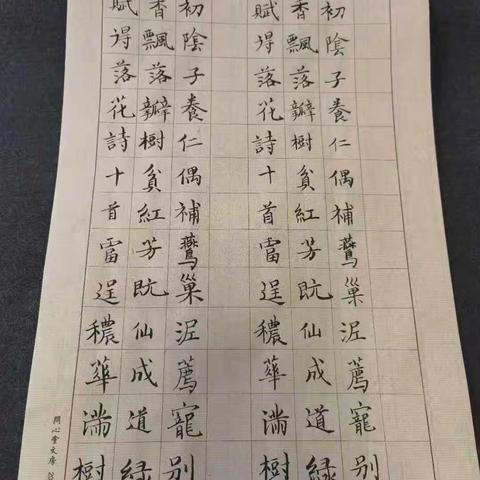 初陰子養仁偶補鷰巢泥薦寵別
香飄落瓣樹貧紅芳既仙成道緑
賦得落花詩十首富逞穠華滿樹
初陰子養仁偶補鷰巢泥薦寵別
香飄落瓣樹貧紅芳既仙成道緑
賦得落花詩十首富逞穠華滿樹